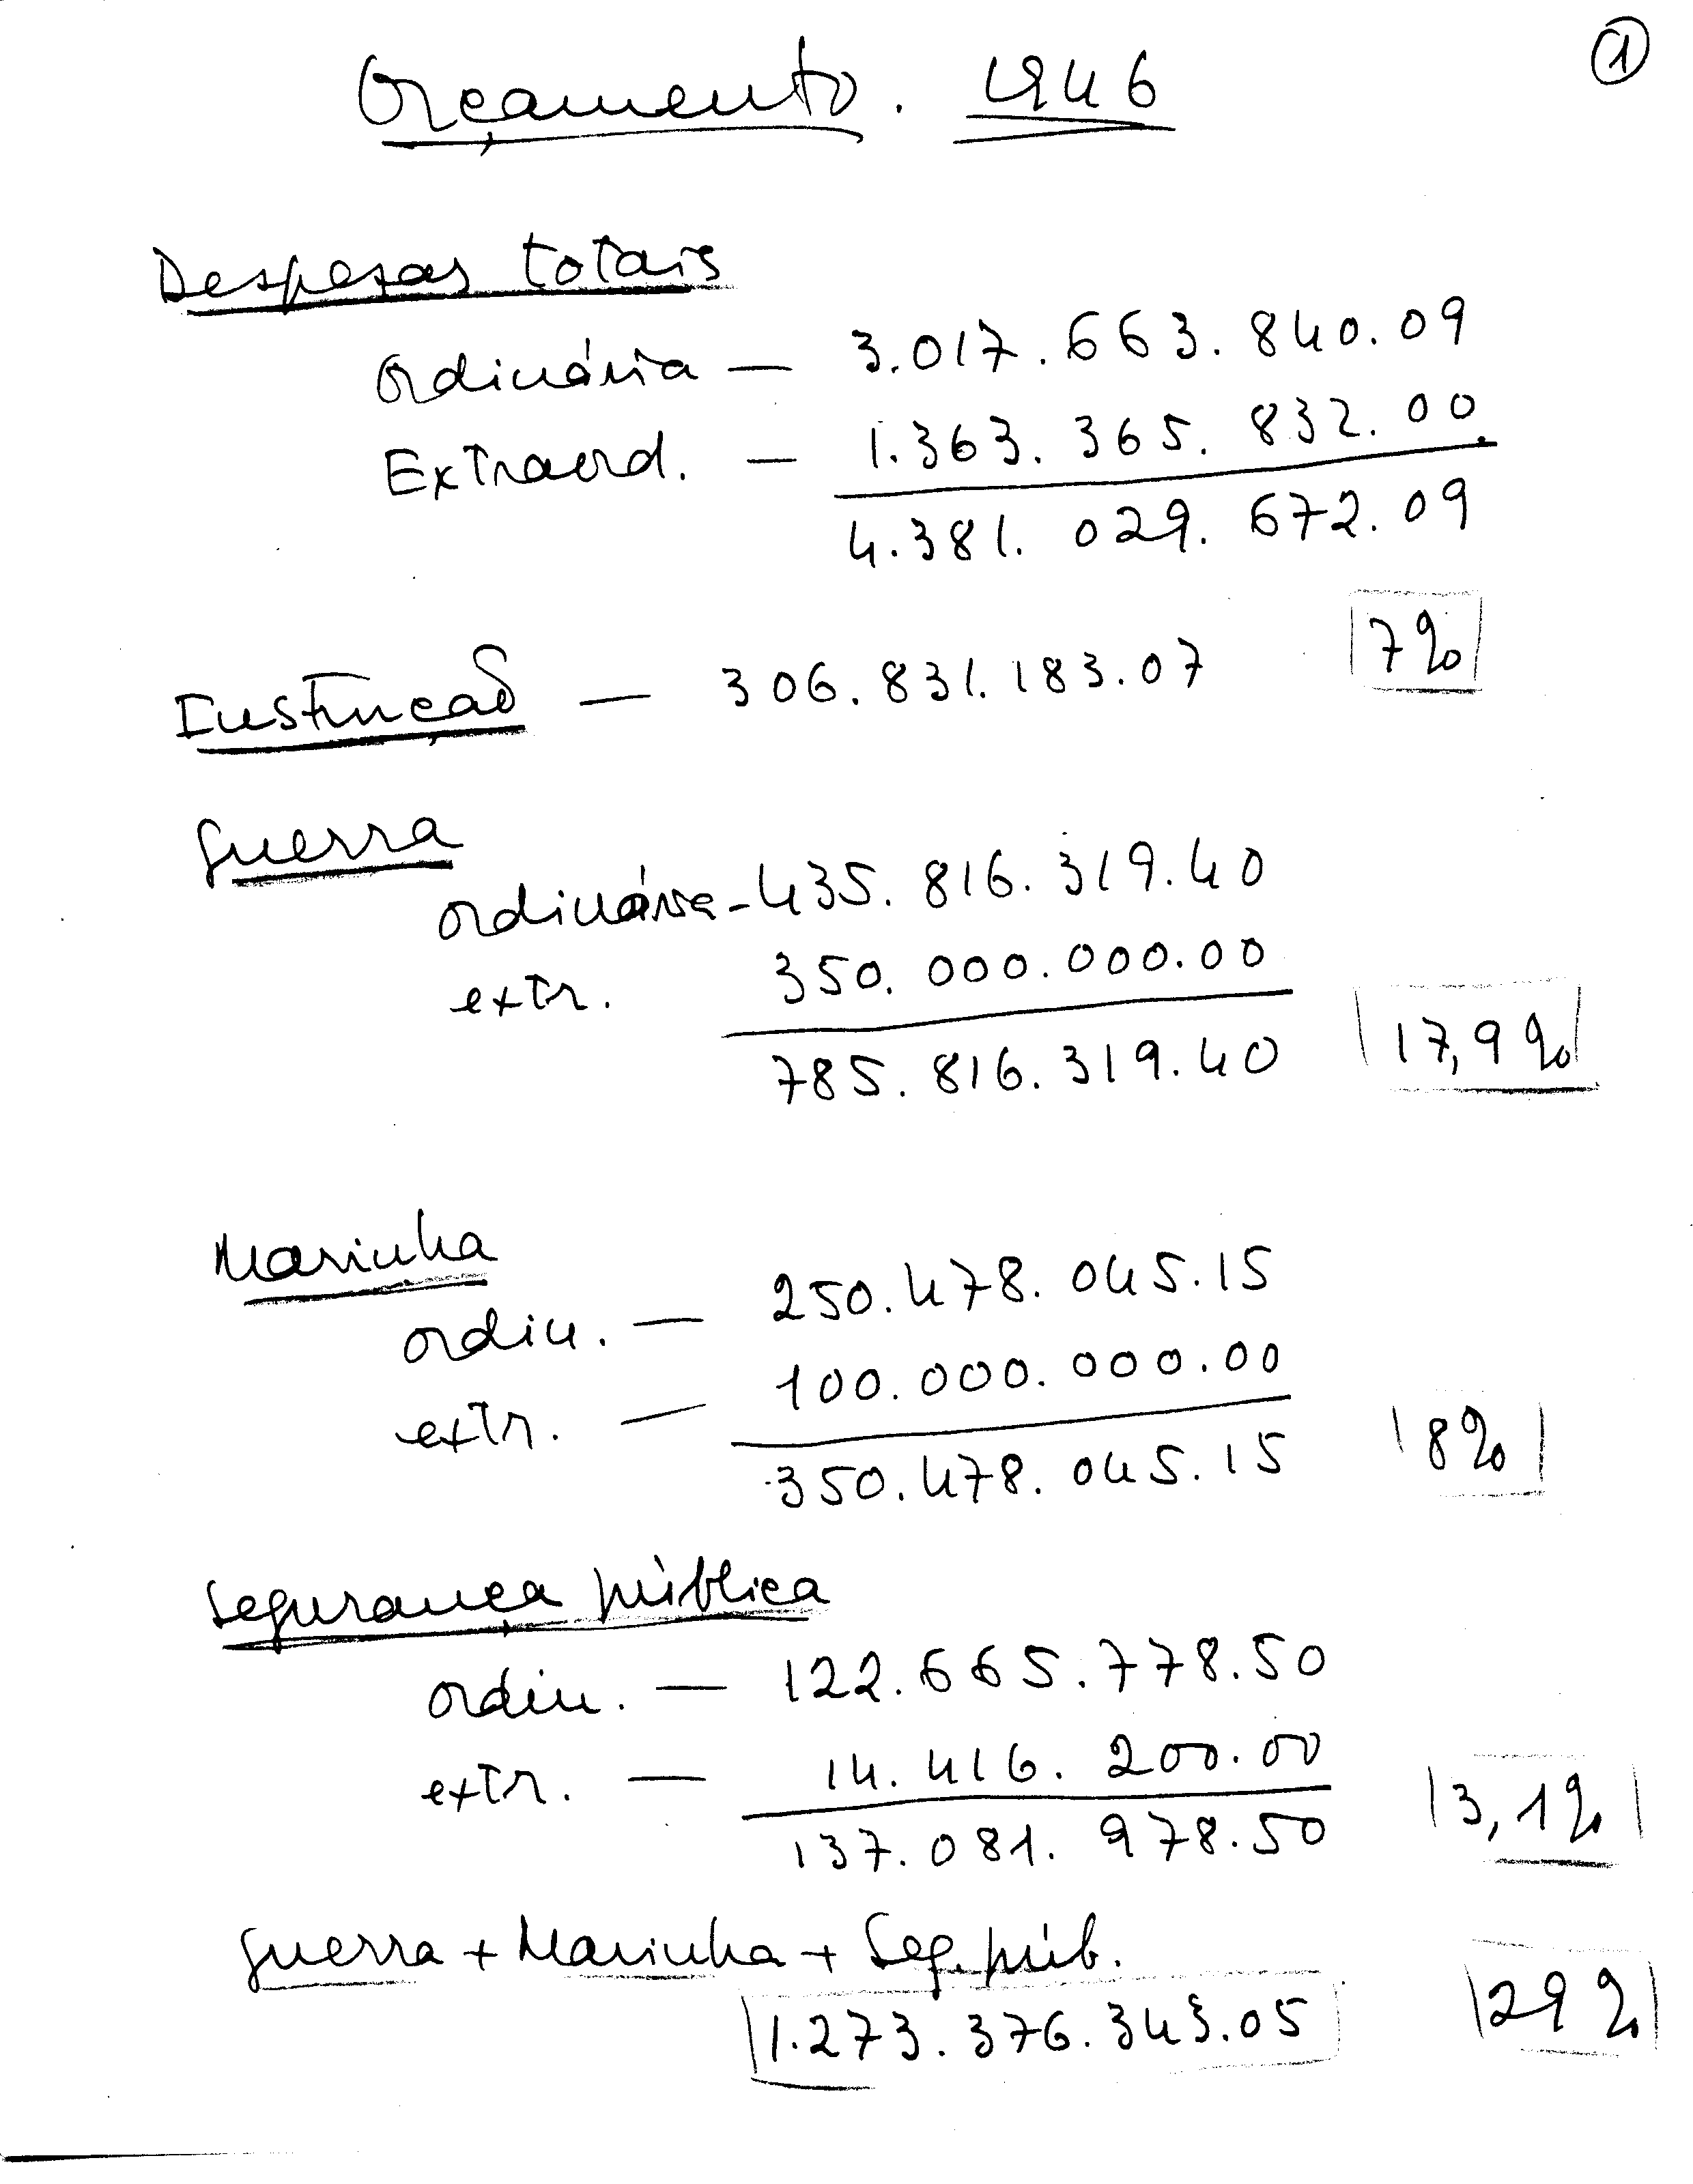 1
Orçamento. 1946
Despesas totais
Ordinária — 3.017.663.840.09
Extraord. — 1.363.365.832.00
4.381.029.672.09
7%
Instrução — 306.831.183.07
Guerra
ordinária - 435.816.319.40
extr. 350.000.000.00
785.816.319.40 17,9%
Marinha
ordin. — 250.478.045.15
extr. — 100.000.000.00
350.478.045.15 8%
Segurança pública
ordin. — 122.665.778.50
extr. — 14.416.200.00
137.081.978.50 3,1%
Guerra + Marinha + Seg. púb.
1.273.376.343.05 29%